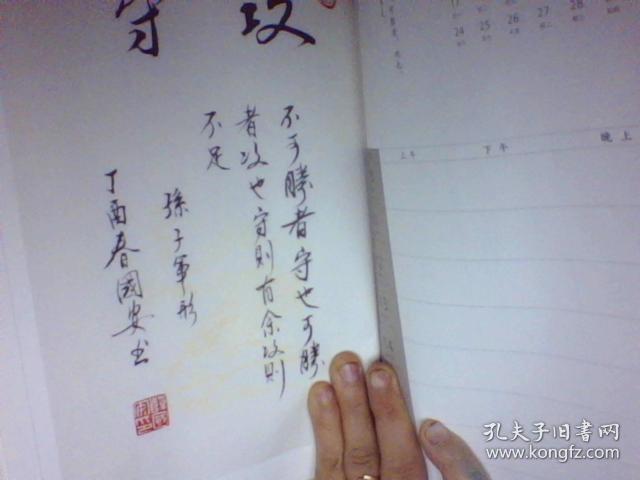 攻守
不可勝者守也可勝
者攻也守則有余攻則
不足
孫子軍形
丁酉春國安书
17
24 25 26 27 28
上午 下午 晚上
孔夫子旧书网
www.kongfz.com